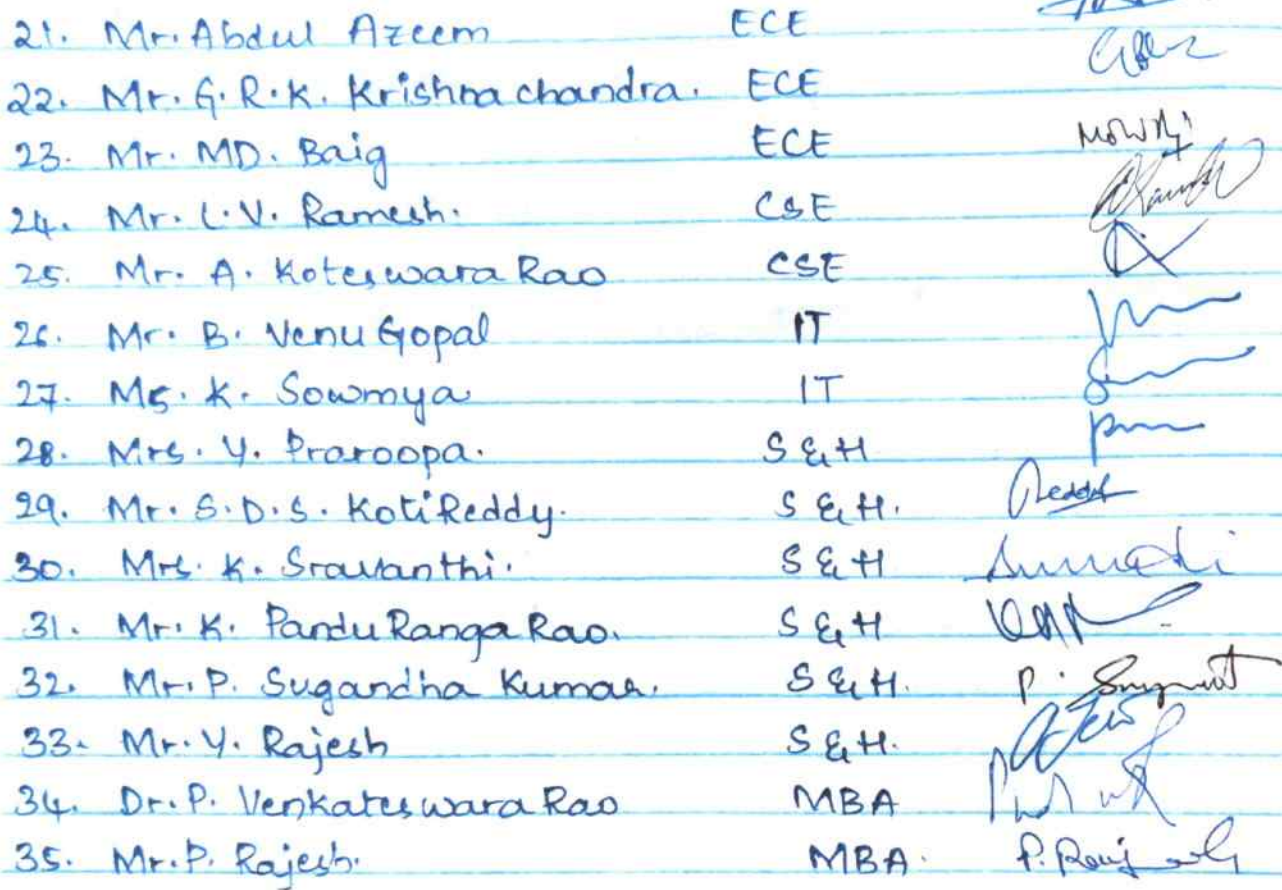 21. Mr. Abdul Azeem ECE
22. Mr. G. R. K. Krishna chandra. ECE
23. Mr. MD. Baig ECE
24. Mr. L. V. Ramesh. CSE
25. Mr. A. Koteswara Rao CSE
26. Mr. B. Venu Gopal IT
27. Ms. K. Sowmya IT
28. Mrs. Y. Praroopa. S & H
29. Mr. S. D. S. Koti Reddy. S & H. Reddy
30. Mrs. K. Sravanthi. S & H
31. Mr. K. Pandu Ranga Rao. S & H
32. Mr. P. Sugandha Kumar. S & H. P.
33. Mr. Y. Rajesh S & H.
34. Dr. P. Venkateswara Rao MBA
35. Mr. P. Rajesh. MBA. P.